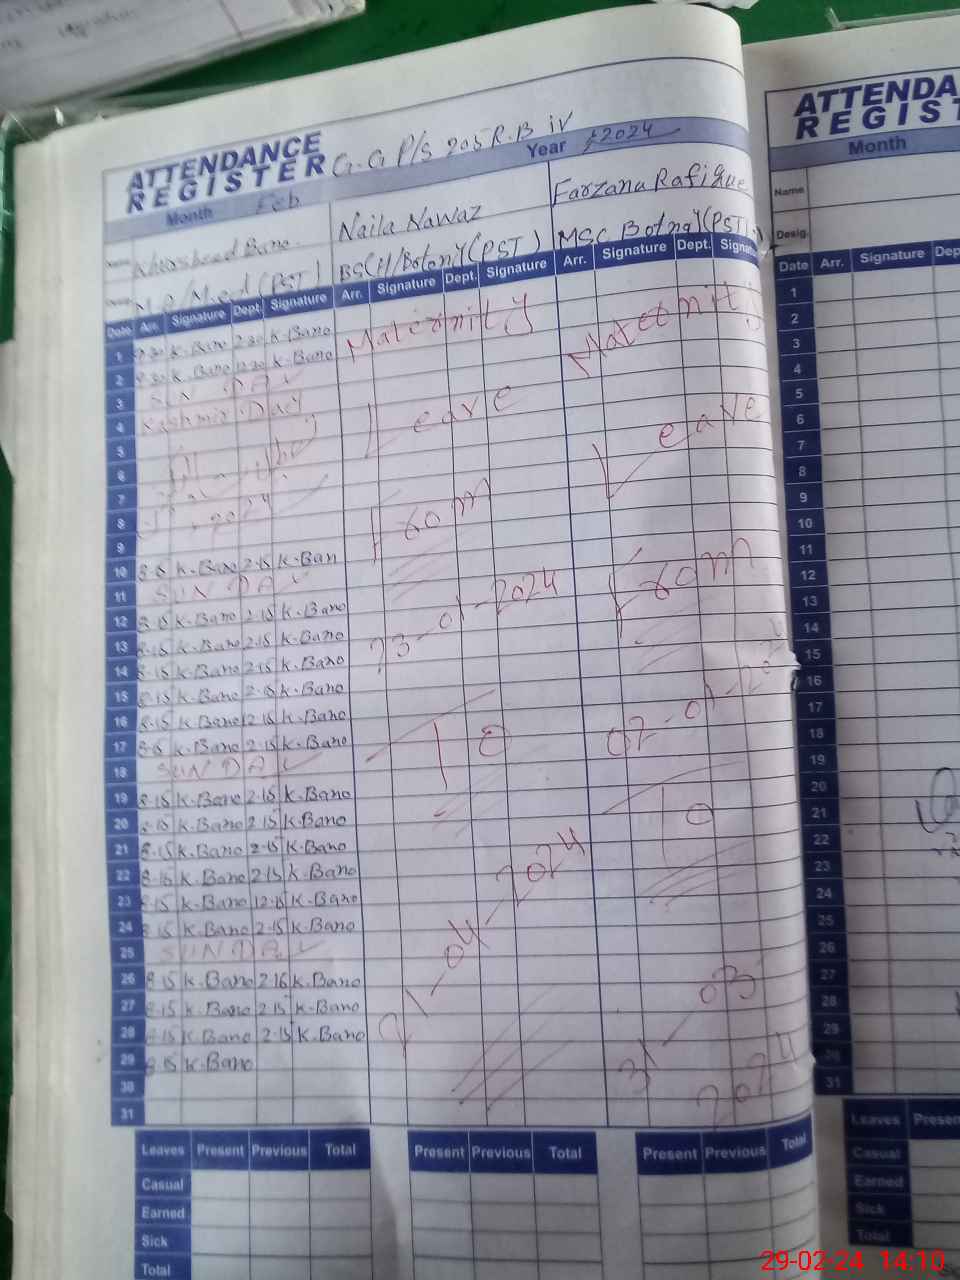 ATTENDANCE
REGISTER G.G P/S 205 R.B iv
Month Feb Year 2024
Name Khursheed Bano Naila Nawaz Farzana Rafique
M.A/M.ed (PST) BS(H/Botony(PST) MSC Botny(PST)
Date Arr. Signature Dept. Signature Arr. Signature Dept. Signature Arr. Signature Dept. Signature
1 K.Bano K.Bano
2 8.30 K.Bano 12.30 K.Bano
3 SUNDAY
4 Kashmir Day
5
6
7
8 2024
9
10 8-15 K.Bano 2-15 K.Ban
11 SUNDAY
12 8-15 K.Bano 2-15 K.Bano
13 8-15 K.Bano 2-15 K.Bano
14 8-15 K.Bano 2-15 K.Bano
15 8-15 K.Bano 2-15 K.Bano
16 8-15 K.Bano 2-15 K.Bano
17 8-15 K.Bano 2-15 K.Bano
18 SUNDAY
19 8-15 K.Bano 2-15 K.Bano
20 8-15 K.Bano 2-15 K.Bano
21 8-15 K.Bano 2-15 K.Bano
22 8-15 K.Bano 2-15 K.Bano
23 8-15 K.Bano 2-15 K.Bano
24 8-15 K.Bano 2-15 K.Bano
25 SUNDAY
26 8-15 K.Bano 2-15 K.Bano
27 8-15 K.Bano 2-15 K.Bano
28 8-15 K.Bano 2-15 K.Bano
29 8-15 K.Bano
30
31
Maternity
Leave
From
23-01-2024
To
21-04-2024
Maternity
Leave
From
To
31-03
2024
Leaves Present Previous Total Present Previous Total Present Previous Total
Casual
Earned
Sick
Total
ATTENDA
REGIST
Month
Name
Desig.
Date Arr. Signature Dep
1
2
3
4
5
6
7
8
9
10
11
12
13
14
15
16
17
18
19
20
21
22
23
24
25
26
27
28
29
30
31
Leaves Presen
Casual
Earned
Sick
Total
29-02-24 14:10